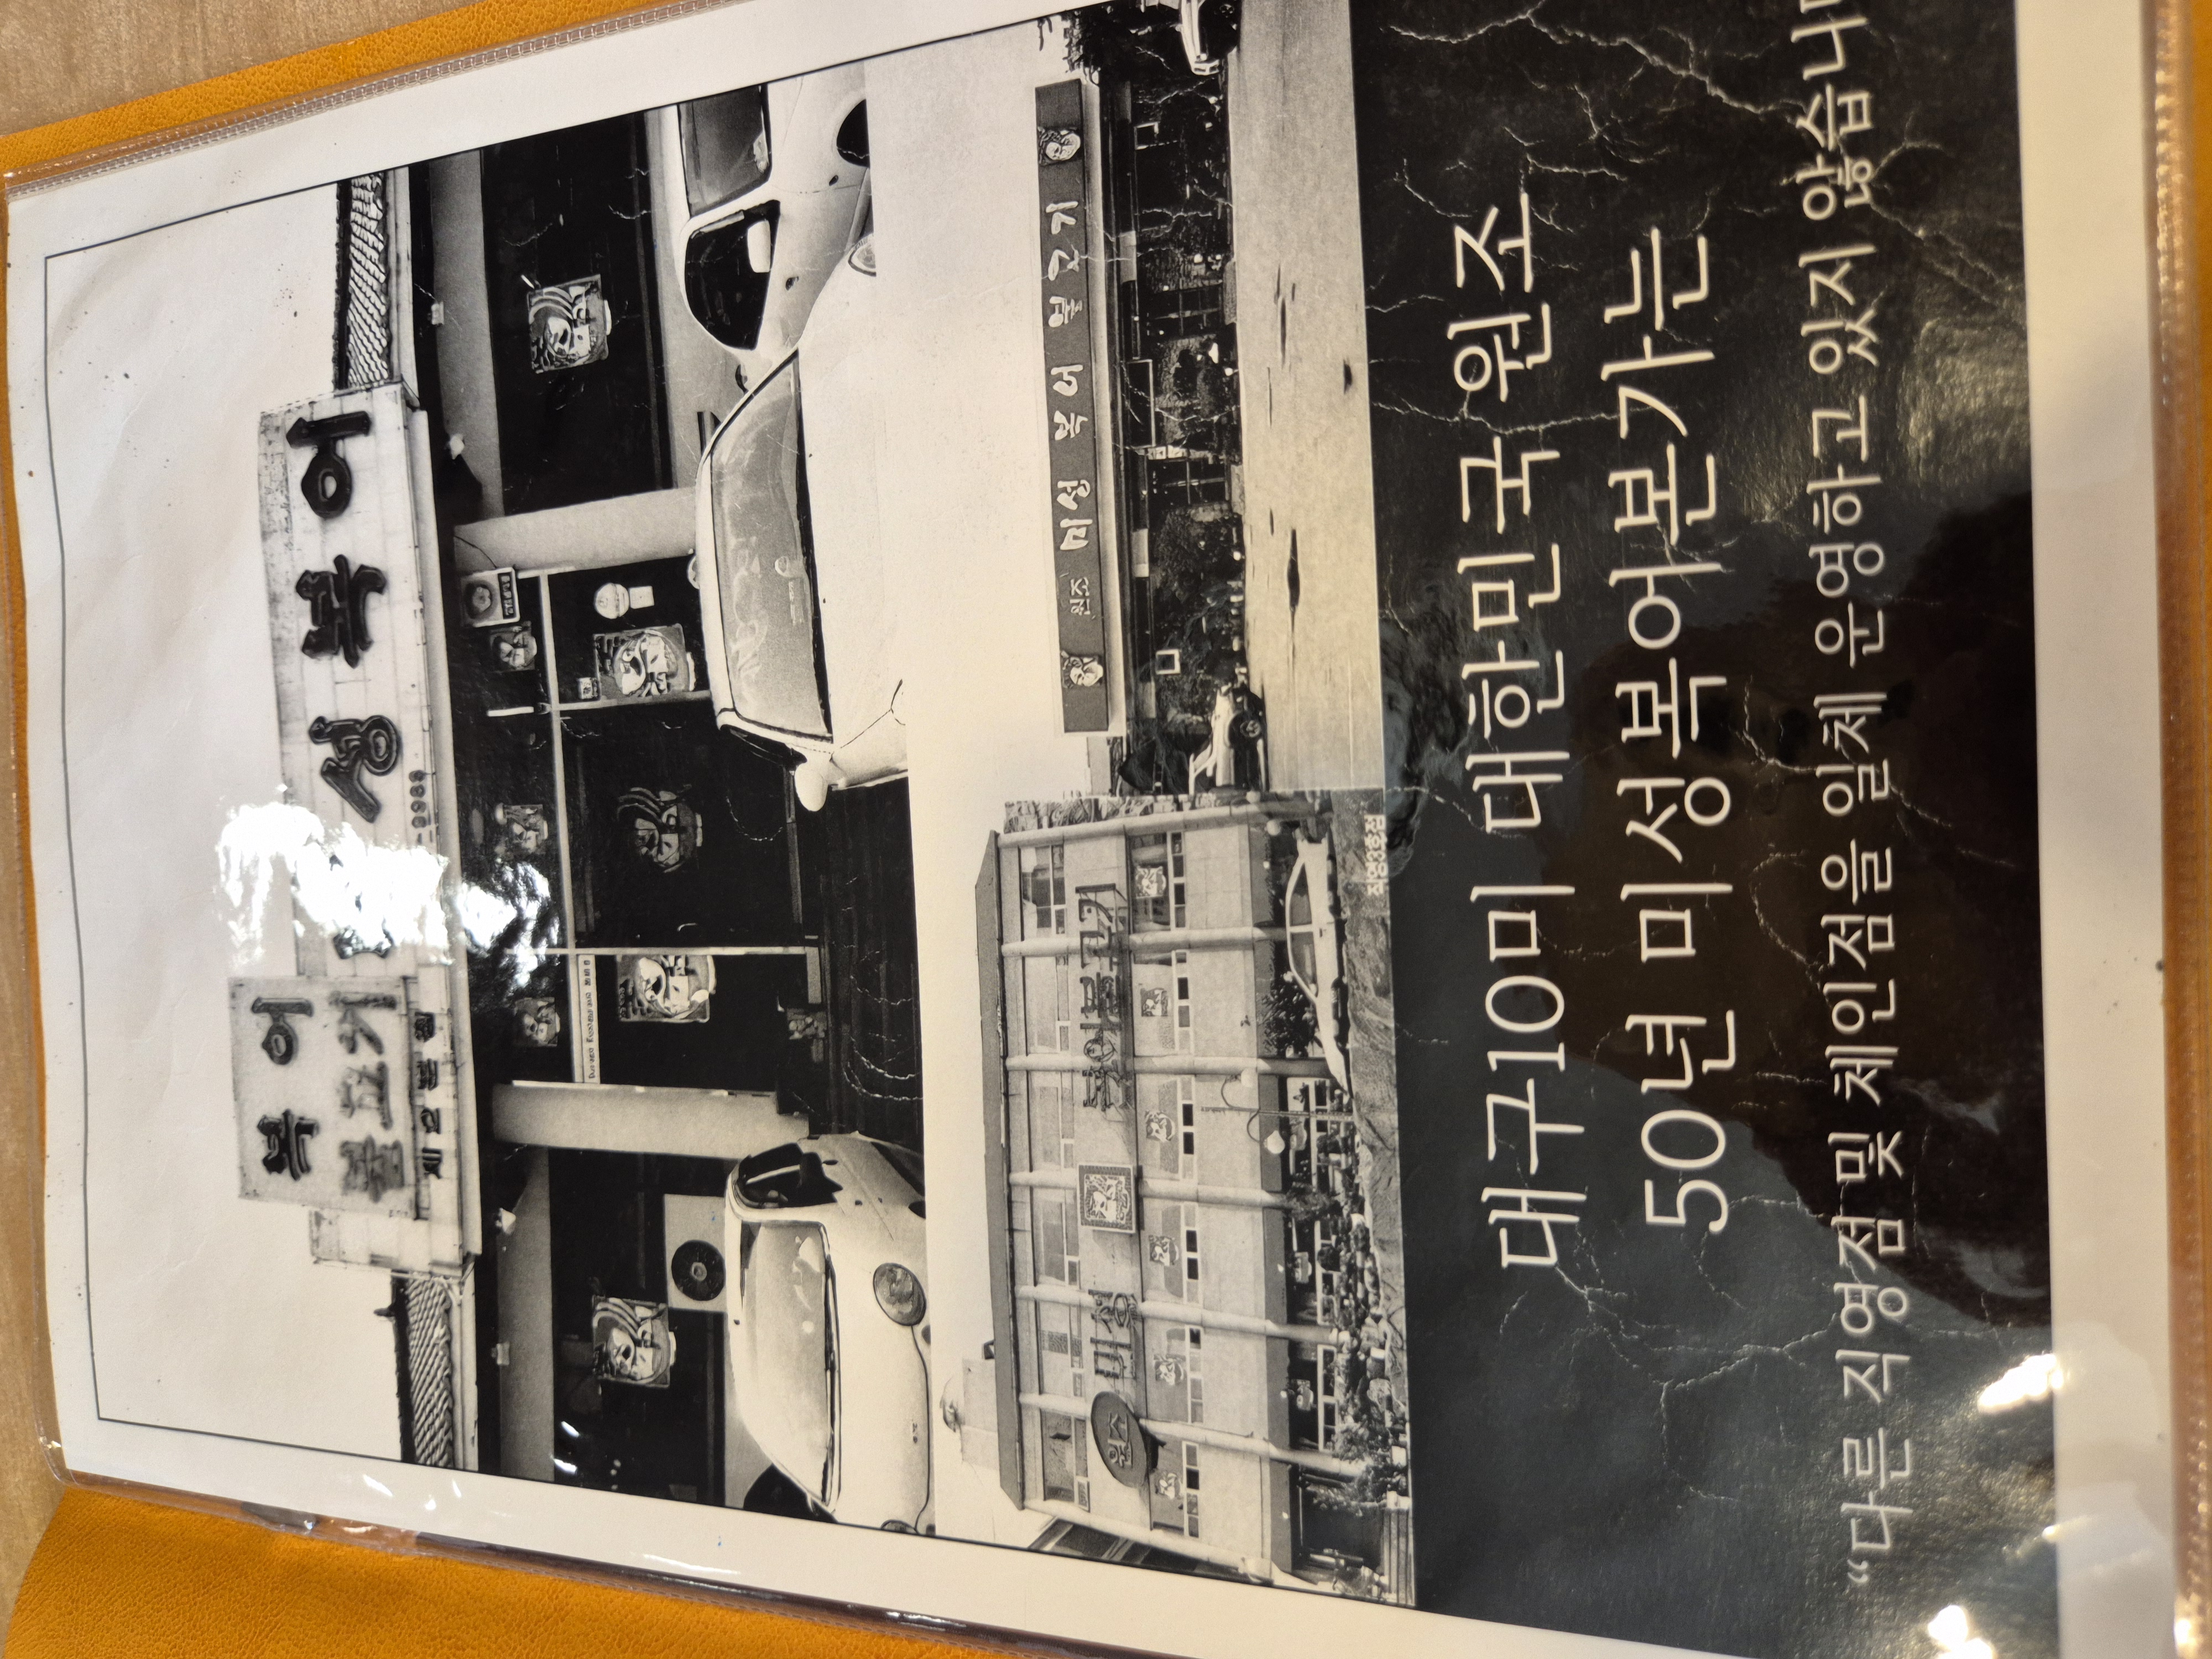 미성복어
복어
불고기
제2호점
원조 미성복어불고기
원조 미성 복어불고기
직영3호점
대구10미 대한민국 원조
50년 미성복어본가는
“다른 직영점 및 체인점을 일체 운영하고 있지 않습니